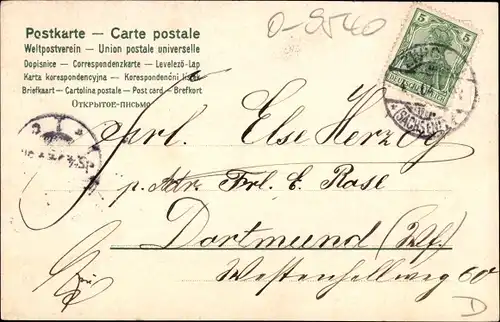 O-9540
Postkarte — Carte postale
Weltpostverein — Union postale universelle
Dopisnice — Correspondenzkarte — Levelező-Lap
Karta korespondencyjna — Korespondenčni listek
Briefkaart — Cartolina postale — Post card — Brefkort
Открытое-письмо
5 5
DEUTSCHES
(SACHSEN)
Frl. Else Herzog
p. Adr. Frl. E. Rose
Dortmund (Wf.)
Westenhellweg 60
D